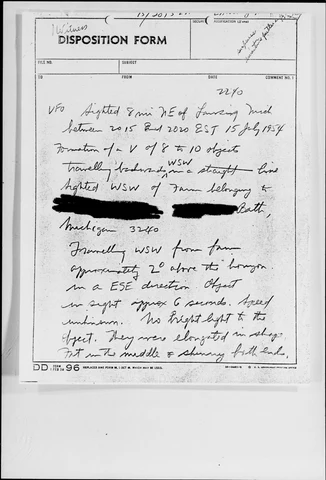 1 Witness
DISPOSITION FORM
FILE NO.
SUBJECT
TO
FROM
DATE
COMMENT NO. 1
2240
UFO Sighted 8 mi NE of Lansing Mich
between 2015 and 2020 EST 15 July 1954
Formation of a V of 8 to 10 objects
travelling WSW in a straight line
Sighted WSW of Farm belonging to
Bath,
Michigan 3240
Travelling WSW from farm
approximately 2° above the horizon
in a ESE direction Object
in sight approx 6 seconds. Speed
unknown. No bright light to the
object. They were elongated in shape
Fat in the middle & skinny both ends.
DD FORM 96
REPLACES NME FORM 96, 1 OCT 48, WHICH MAY BE USED.